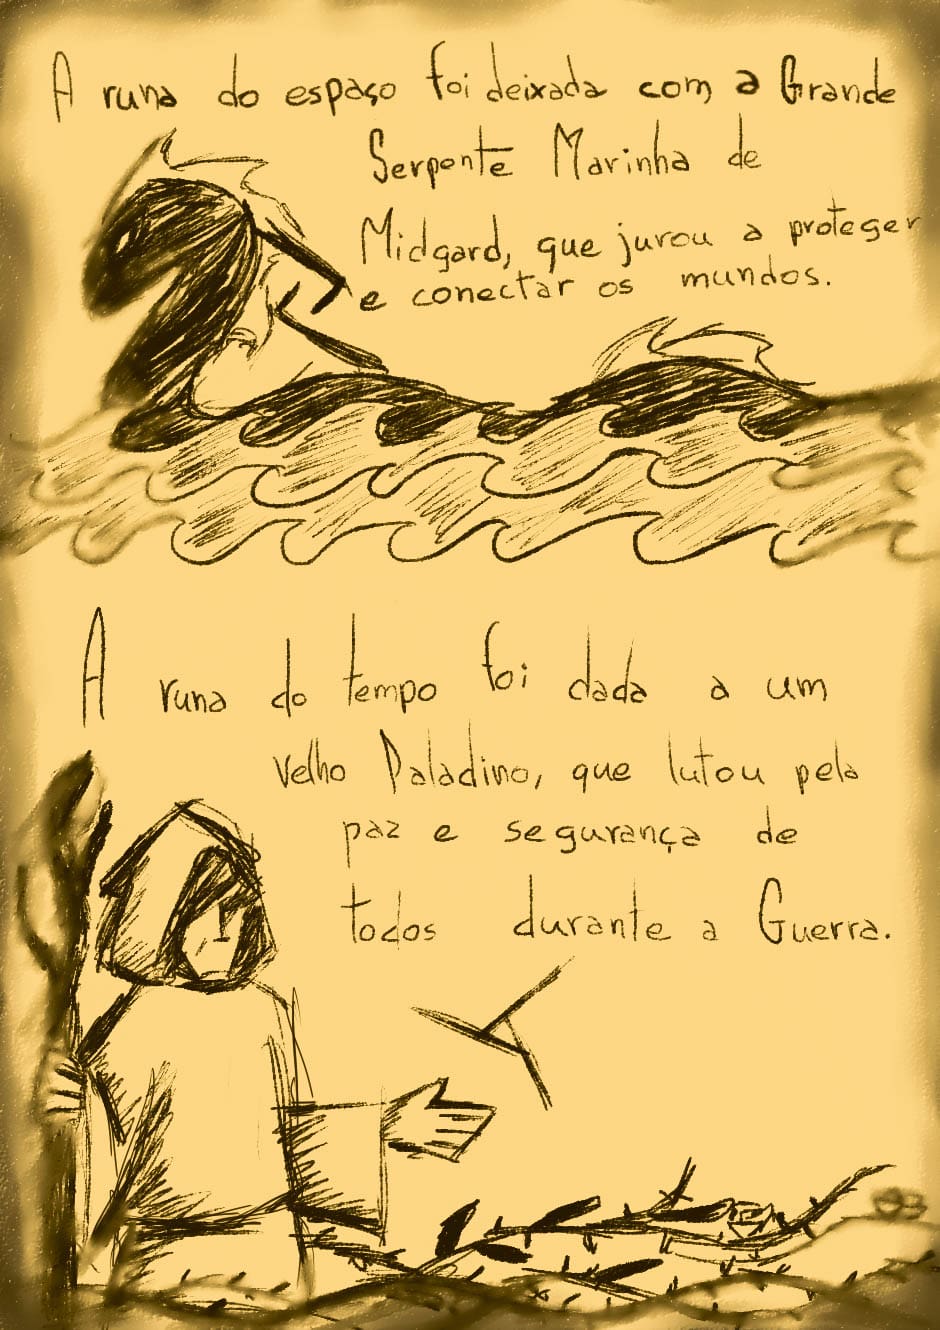 A runa do espaço foi deixada com a Grande
Serpente Marinha de
Midgard, que jurou a proteger
e conectar os mundos.
A runa do tempo foi dada a um
velho Paladino, que lutou pela
paz e segurança de
todos durante a Guerra.